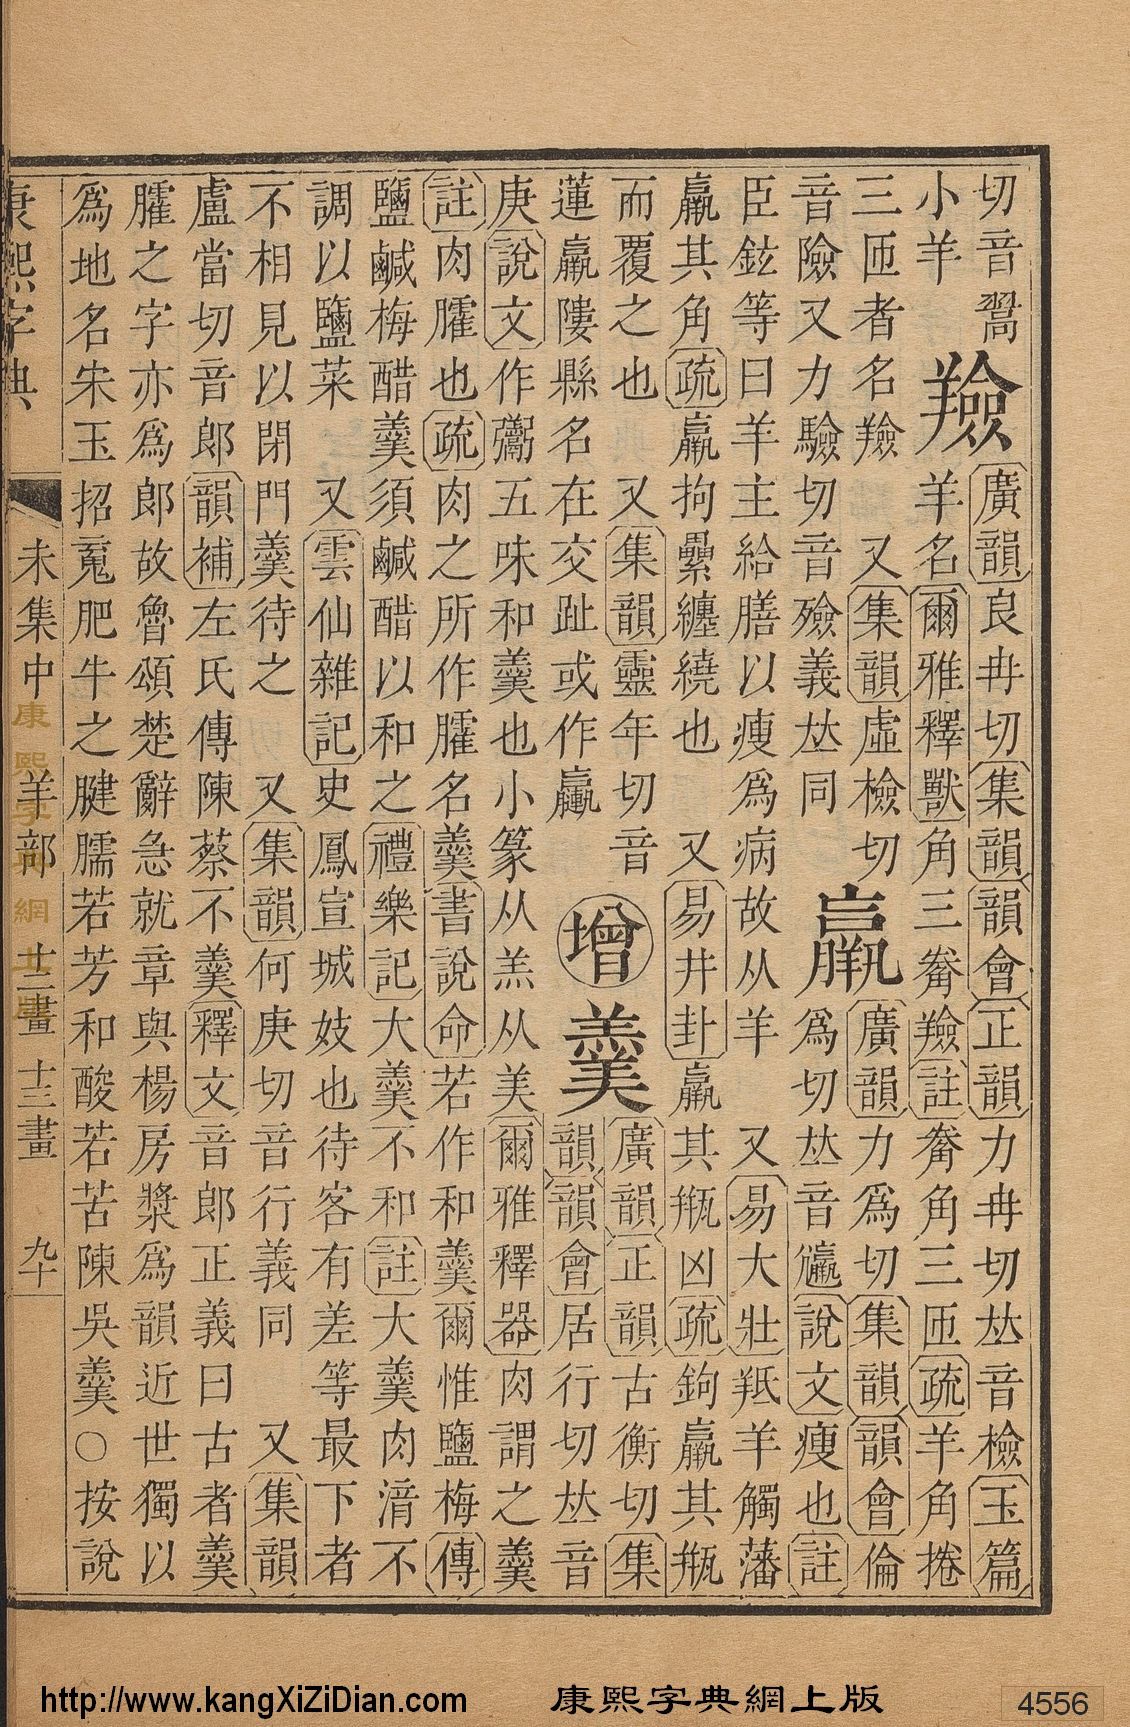 切音翯
小羊
羷
廣韻良冉切集韻韻會正韻力冉切𠀤音檢玉篇
羊名爾雅釋獸角三觠羷註觠角三匝疏羊角捲
三匝者名羷 又集韻虛檢切
音險又力驗切音殮義𠀤同
羸
廣韻力爲切集韻韻會倫
爲切𠀤音 說文瘦也註
臣鉉等曰羊主給膳以瘦爲病故从羊 又易大壯羝羊觸藩
羸其角疏羸拘纍纏繞也 又易井卦羸其瓶凶疏鉤羸其瓶
而覆之也 又集韻靈年切音
蓮羸縣名在交趾或作
增
羹
廣韻正韻古衡切集
韻韻會居行切𠀤音
庚說文作五味和羹也小篆从羔从美爾雅釋器肉謂之羹
註肉臛也疏肉之所作臛名羹書說命若作和羹爾惟鹽梅傳
鹽鹹梅醋羹須鹹醋以和之禮樂記大羹不和註大羹肉湇不
調以鹽菜 又雲仙雜記史鳳宣城妓也待客有差等最下者
不相見以閉門羹待之 又集韻何庚切音行義同 又集韻
盧當切音郎韻補左氏傳陳蔡不羹釋文音郎正義曰古者羹
臛之字亦爲郎故魯頌楚辭急就章與楊房漿爲韻近世獨以
爲地名宋玉招䰟肥牛之腱臑若芳和酸若苦陳吳羹○按說
康熙字典 未集中 羊部 十二畫 十三畫 九十
http://www.kangXiZiDian.com 康熙字典網上版 4556